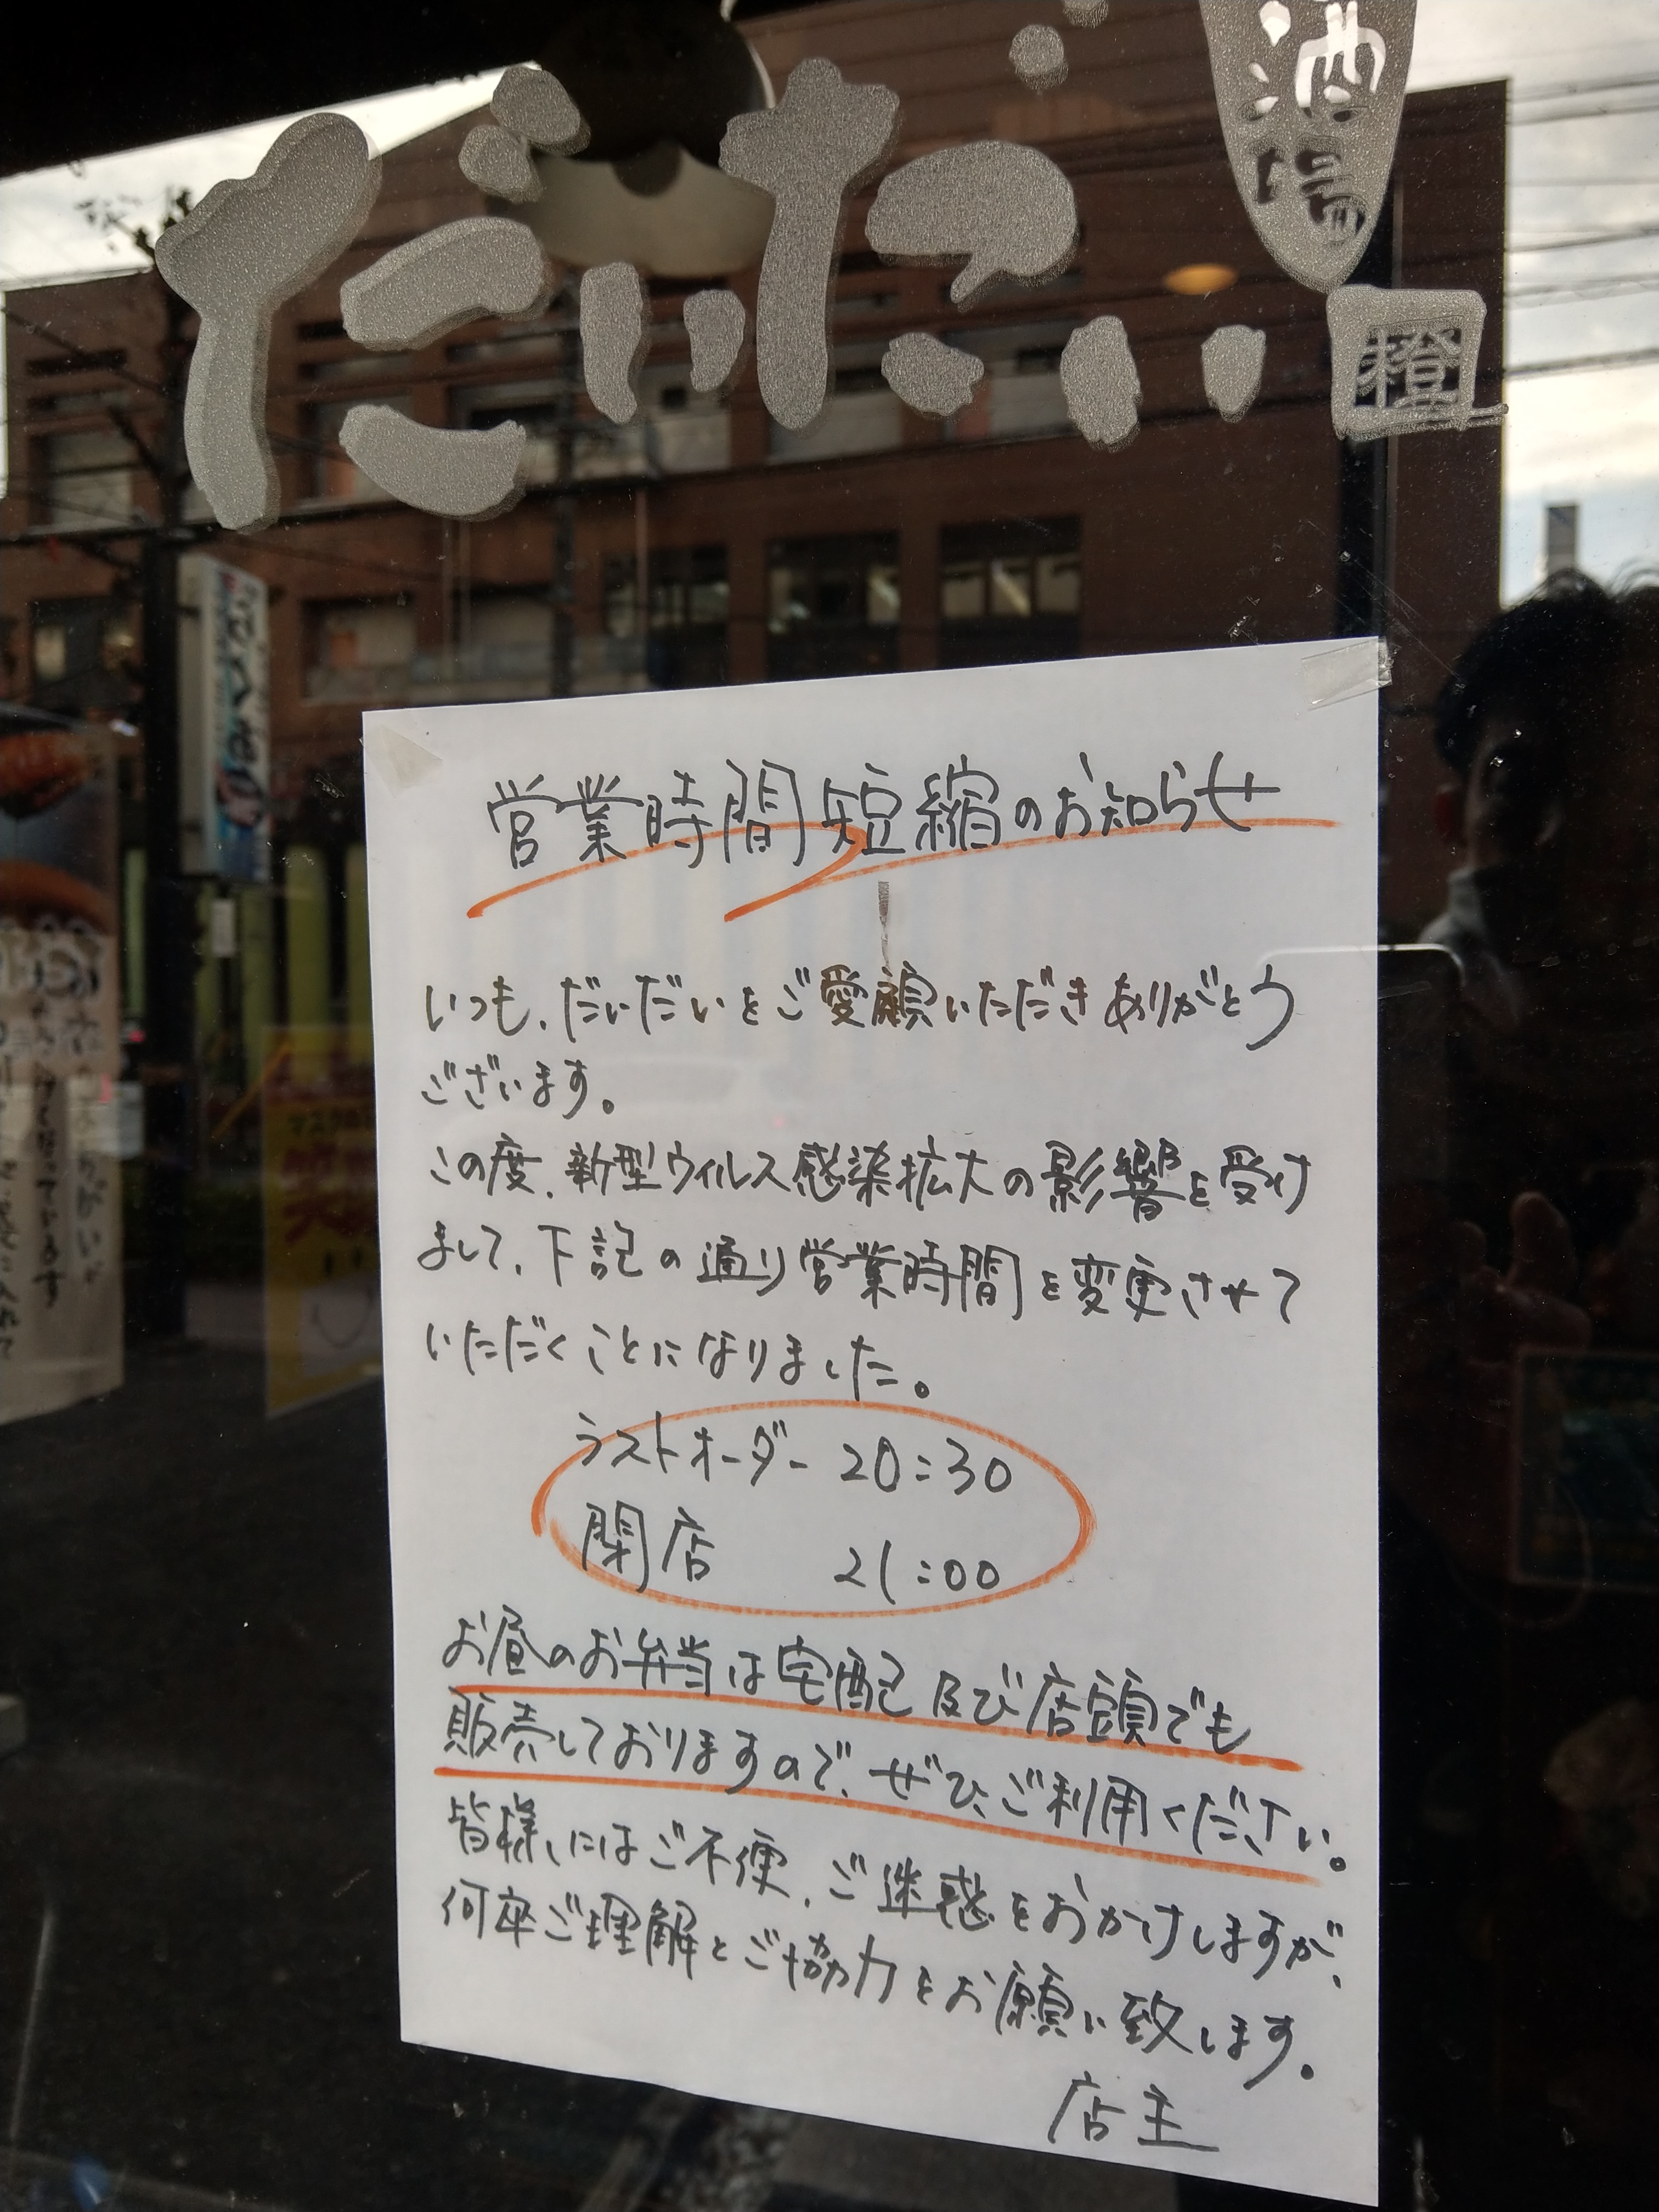 酒場
だいだい
橙
営業時間短縮のお知らせ
いつも、だいだいをご愛顧いただきありがとう
ございます。
この度、新型ウィルス感染拡大の影響を受け
まして、下記の通り営業時間を変更させて
いただくことになりました。
ラストオーダー 20:30
閉店 21:00
お昼のお弁当は宅配及び店頭でも
販売しておりますので、ぜひ、ご利用ください。
皆様にはご不便、ご迷惑をおかけしますが、
何卒ご理解とご協力をお願い致します。
店主